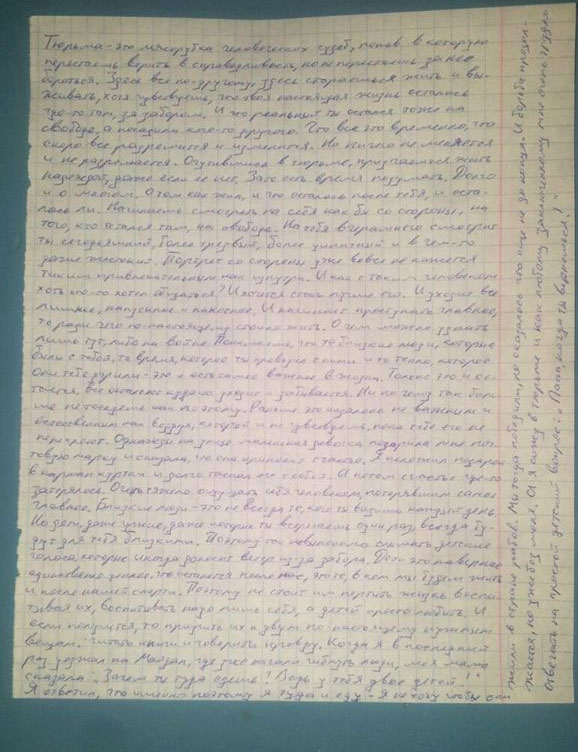 Тюрьма - это мясорубка человеческих судеб, попав в которую
перестаешь верить в справедливость, но не перестаешь за нее
бороться. Здесь все по-другому, здесь стараешься жить и вы-
живать, хотя чувствуешь, что твоя настоящая жизнь осталась
где-то там, за забором. И что реальный ты остался тоже на
свободе, а посадили кого-то другого. Что все это временно, что
скоро все разрешится и изменится. Но ничего не меняется
и не разрешается. Очутившись в тюрьме, приучаешься жить
надеждой, даже если ее нет. Зато есть время подумать. Долго
и о многом. О том как жил, и что осталось после тебя, и оста-
лось ли. Начинаешь смотреть на себя как бы со стороны, на
того, кто остался там, на свободе. На тебя вчерашнего смотрит
ты сегодняшний, более трезвый, более циничный и в чем-то
даже жестокий. Портрет со стороны уже вовсе не кажется
таким привлекательным как изнутри. И как с таким человеком
хоть кто-то хотел общаться? И хочется стать лучше его. Уходит все
лишнее, напускное и наносное. И начинает проступать главное,
то ради чего по-настоящему стоило жить. О чем можно узнать
лишь тут, либо на войне. Понимаешь, что те близкие люди, которые
были с тобой, то время, которое ты проводил с ними и то тепло, которое
они тебе дарили - это и есть самое важное в жизни. Только это и ос-
тается, все остальное ерунда, уходит и забывается. Ни по чему так боль-
ше не тоскуешь как по этому. Раньше это казалось не важным и
естественным как воздух, который и не чувствуешь, пока тебе его не
перекроют. Однажды на зоне маленькая девочка подарила мне поч-
товую марку и сказала, что она приносит счастье. Я положил подарок
в карман куртки и долго таскал ее с собой. А потом счастье где-то
затерялось. Очень тяжело ощущать себя человеком, потерявшим самое
главное. Близкие люди - это не всегда те, кого ты видишь каждый день.
Но дети, даже чужие, даже которых ты встречаешь один раз, всегда бу-
дут для тебя близкими. Поэтому так невыносимо слышать детские
голоса, которые иногда доносит ветер из-за забора. Дети это наверное
единственно ценное что останется после нас, это те, в ком мы будем жить
и после нашей смерти. Поэтому не стоит им портить жизнь воспи-
тывая их, воспитывать надо лишь себя, а детей просто любить. И
если получится, то приучить их к двум по-настоящему нужным
вещам: читать книги и говорить правду. Когда я в последний
раз уезжал на Майдан, где уже начали гибнуть люди, моя мама
сказала: "Зачем ты туда едешь? Ведь у тебя двое детей!"
Я ответил, что именно поэтому я туда и еду - Я не хочу чтобы они
жили в стране рабов. Мы тогда победили, но оказалось что еще не до конца. И борьба продол-
жается, но уже без меня. А я сижу в тюрьме и как любому заключенному мне очень трудно
отвечать на простой детский вопрос: "Папа, когда ты вернешься?"